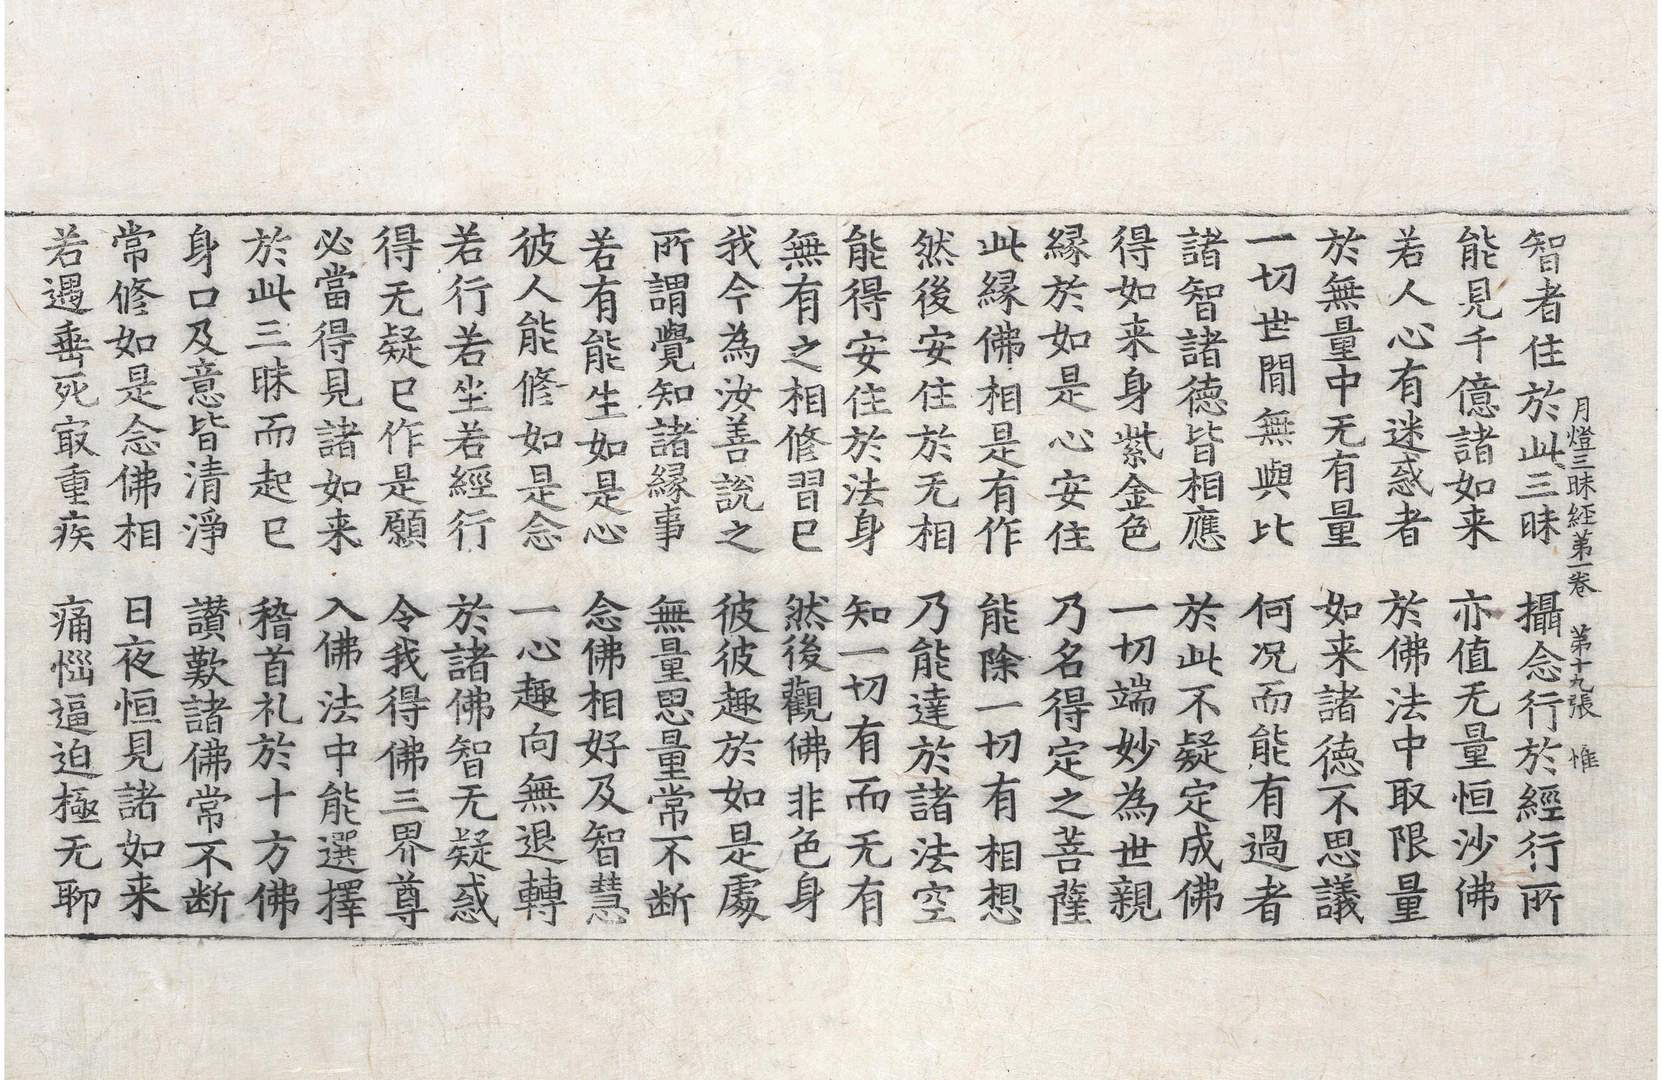 月燈三昧経第一卷 第十九張 惟
智者住於此三昧 攝念行於經行所
能見千億諸如来 亦值无量恒沙佛
若人心有迷惑者 於佛法中取限量
於無量中无有量 如来諸德不思議
一切世間無與比 何况而能有過者
諸智諸德皆相應 於此不疑定成佛
得如来身紫金色 一切端妙為世親
縁於如是心安住 乃名得定之菩薩
此縁佛相是有作 能除一切有相想
然後安住於无相 乃能達於諸法空
能得安住於法身 知一切有而无有
無有之相修習已 然後觀佛非色身
我今為汝善說之 彼彼趣於如是處
所謂覺知諸縁事 無量思量常不断
若有能生如是心 念佛相好及智慧
彼人能修如是念 一心趣向無退轉
若行若坐若經行 於諸佛智无疑惑
得无疑已作是願 令我得佛三界尊
必當得見諸如来 入佛法中能選擇
於此三昧而起已 稽首礼於十方佛
身口及意皆清淨 讃歎諸佛常不断
常修如是念佛相 日夜恒見諸如来
若遇垂死㝡重疾 痛惱逼迫極无聊